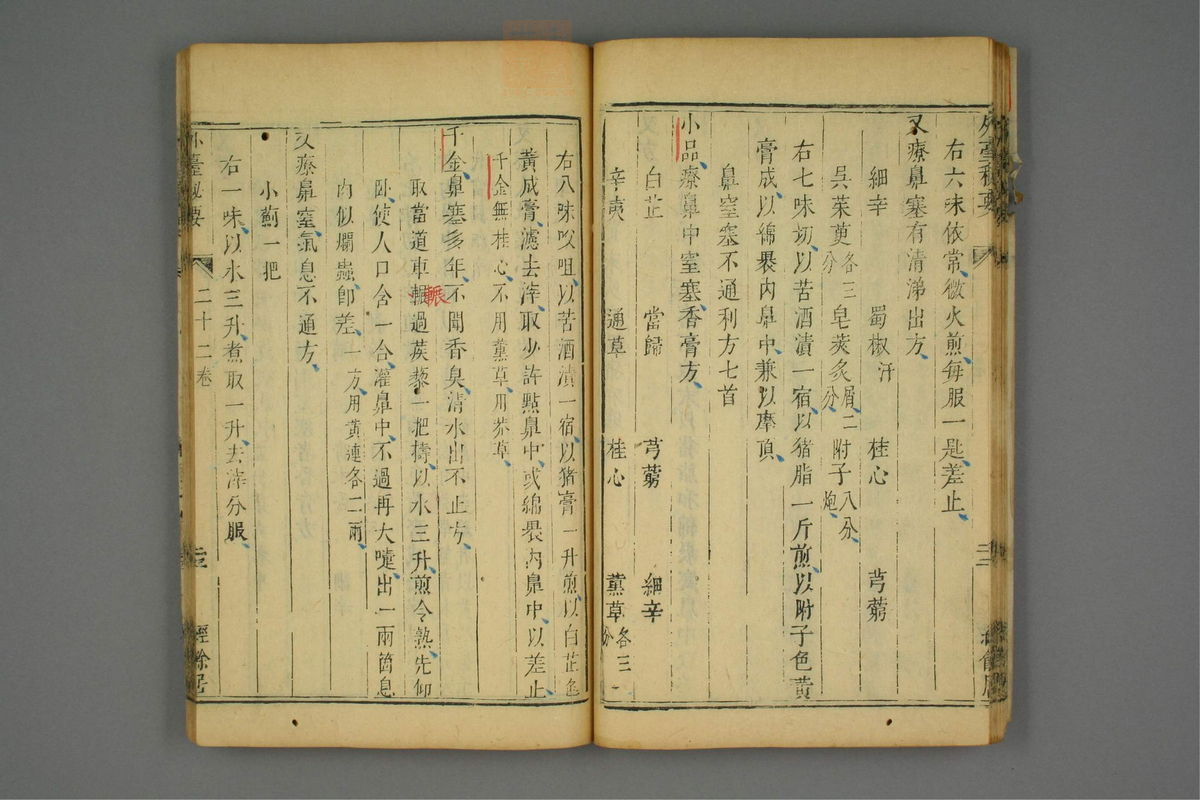 外臺秘要
右六味依常微火煎每服一匙差止
又療鼻塞有清涕出方
細辛 蜀椒汗 桂心 芎藭
吳茱萸各三分 皂莢炙屑二分 附子八分炮
右七味切以苦酒漬一宿以猪脂一斤煎以附子色黄
膏成以綿褁内鼻中兼以摩頂
鼻窒塞不通利方七首
小品療鼻中窒塞香膏方
白芷 當歸 芎藭 細辛
辛夷 通草 桂心 薰草各三分
右八味㕮咀以苦酒漬一宿以猪膏一升煎以白芷色
黄成膏濾去滓取少許點鼻中或綿褁内鼻中以差止
千金無桂心不用薰草用莽草
千金鼻塞多年不聞香臭清水出不止方
取當道車輾過蒺藜一把擣以水三升煎令熟先仰
輾
卧使人口含一合灌鼻中不過再大嚏出一兩箇息
肉似爛蟲卽差一方用黄連各二兩
又療鼻窒氣息不通方
小薊一把
右一味以水三升煮取一升去滓分服
外臺秘要 二十二卷 經餘居